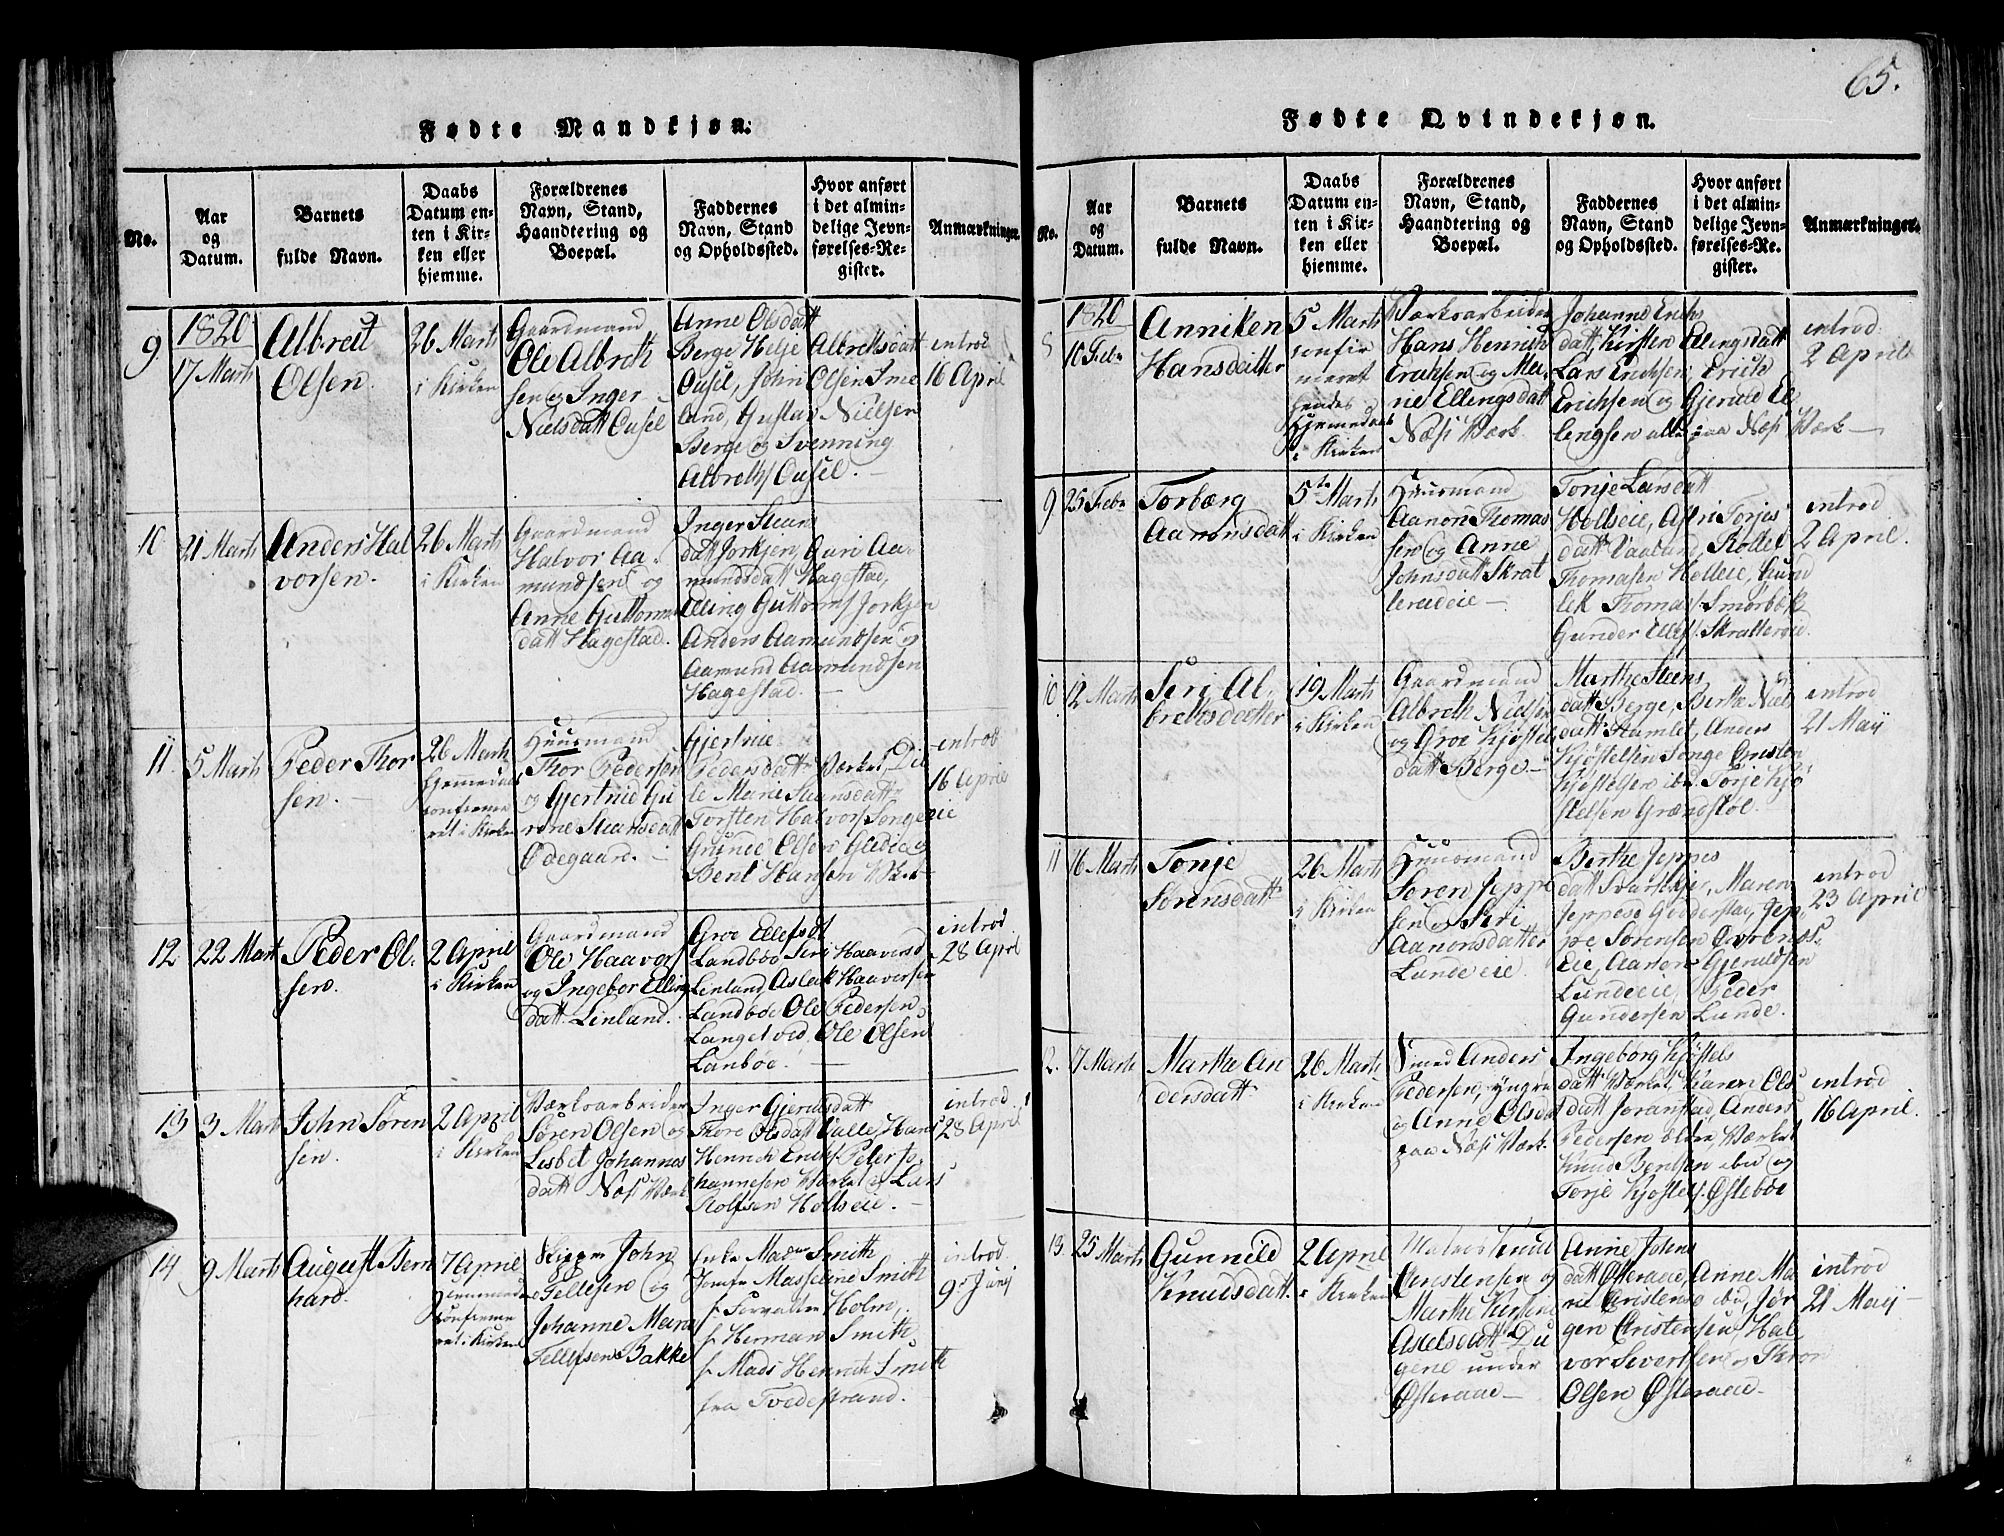 65.
Fødte Mandkjøn.
No.
Aar
og
Datum.
Barnets
fulde Navn.
Daabs
Datum en-
ten i Kir-
ken eller
hjemme.
Forældrenes
Navn, Stand,
Haandtering og
Boepæl.
Faddernes
Navn, Stand
og Opholdssted.
Hvor anført
i det almin-
delige Jevn-
førelses-Re-
gister.
Anmærkninger.
9
1820
17 Marts
Albret
Olsen.
26 Marts
i Kirken
Gaardmand
Ole Albreth
sen og Inger
Nielsdatt Ousel
Anne Olsdatt
Berge Helje Albretsdatt
Ousel, John Olsen Sme
land, Gustav Nielsen
Berge og Svenning
Albreths Ousel.
introd
16 April
10
21 Marts
Anders Hal
vorsen.
26 Marts
i Kirken
Gaardmand
Halvor Aa-
mundsen og
Anne Guttorms
datt Hagestad.
Inger Steens
datt Jorkjen, Guri Aa-
mundsdatt Hagestad,
Elling Guttorms Jorkjen
Anders Aamundsen og
Aamund Aamundsen
Hagestad.
11
5 Marts
Peder Thor
sen.
26 Marts
hjemmedøb
confirme
ret i Kirken
Huusmand
Thor Pedersen
og Gjertrud Gu
rine Steensdatt
Ødegaard.
Gjertrue
Pedersdatt Værket
Marie Steensdatt
Torsten Halvors Songe eie
Grunde Olsen
Bent Hansen
introd
16 April
12
22 Marts
Peder Ol-
sen.
2 April
i Kirken
Gaardmand
Ole Haavors
og Ingebor Elling
datt. Linland.
Groe Ellefsdt
Landboe Seri Haavorsd
Linland Aslak Haavorsen
Landboe Ole Pedersen
Langetved, Ole Olsen
Lanboe.
introd
28 April
13
3 Marts
John Søren
sen.
2 April
i Kirken
Værksarbeider
Søren Olsen og
Lisbet Johannes
datt Næss Værk
Inger Gjeruldsdatt
Thore Olsdatt Valle, Hans
Henrich Erichs. Peter Jo-
hannesen Værket og Lars
Rolfsen Holtseie.
introd
28 April
14
9 Marts
August Bern
hard.
7 April
hjemmedø
confirme
ret i Kirken
Skipper John
Tellefsen og
Johanne Marie
Tellefsen Bakke
Enke Mad Smith
Jomfr Masseline Smith
Hr Forvalter Holm,
Hr Herman Smith
Hr Mads Henrich Smith
fra Tvedestrand.
introd
9 Junij
Fødte Qvindekjøn.
No.
Aar
og
Datum.
Barnets
fulde Navn.
Daabs
Datum en-
ten i Kir-
ken eller
hjemme.
Forældrenes
Navn, Stand,
Haandtering og
Boepæl.
Faddernes
Navn, Stand
og Opholdssted.
Hvor anført
i det almin-
delige Jevn-
førelses-Re-
gister.
Anmærkninger.
8
1820
10 Febr
Anniken
Hansdatter
5 Marts
confir
meret
hendes
hjemmedaab
i Kirken
Værksarbeider
Hans Henrich
Erichsen og Ma-
ne Ellingsdatt
Næss Værk.
Johanne Erichs
datt, Kirsten Ellingsdatt
Lars Erichsen, Erich
Erichsen og Gjeruld El
lengsen alle paa Næss Værk
introd
2 April
9
25 Febr
Torbærg
Aanonsdatt
5te Marts
i Kirken
Huusmand
Aanon Thomas
sen og Anne
Johnsdatt Skrat
lereideie
Tonje Larsdatt
Holtseie, Asri Torjes
datt Vaaland, Rollef
Thomasen Holleie, Gund
lek Thomas. Smorbek
Gunder Ellefs. Skrattereid.
introd
2 April.
10
12 Marts
Seri Al-
brethsdatter
19 Marts
i Kirken
Gaardmand
Albreth Nielsen
og Groe Kjøstels
datt Berge
Marthe Steens
datt Berge, Berthe Niels
datt Hamlet, Anders
Kjøstelsen Songe Cristen
Kjøstelsen ibd Torje Kjø
stelsen Grændstøl.
introd
21 Maij
11
16 Marts
Tonje
Sørensdatt
26 Marts
i Kirken
Huusmand
Søren Jeppe
sen og Seri
Aanonsdatter
Lunde eie.
Berthe Jeppes
datt Svartskjer, Maren
Jeppese Godderstad, Jep-
pe Sørensen Qvrenes-
Eie, Aanon Gjeruldsen
Lundeeie, Peder
Gundersen Lunde.
introd
23 April
12.
17 Marts
Marthe An
dersdatt
26 Marts
i Kirken
Smed Anders
Pedersen, yngre
og Anne Olsda
paa Næss Værk.
Ingeborg Kjøstels
datt Værket, Karen Ols
datt Joranstad, Anders
Pedersen ældre, Værket
Knud Bentsen ibd og
Torje Kjøstels. Østeboe
introd
16 April.
13.
25 Marts
Gunnild
Knudsdatt.
2 April
i Kirken
Matros Knud
Christensen og
Marthe Kirstine
Axelsdatt Du
gene under
Østeraae
Anne Johns
datt Østeraae, Anne Ma-
rie Cristense ibid, Jør
gen Cristensen, Hal
vor Sivertsen og Thron
Olsen Østeraae.
introd
21 Maij